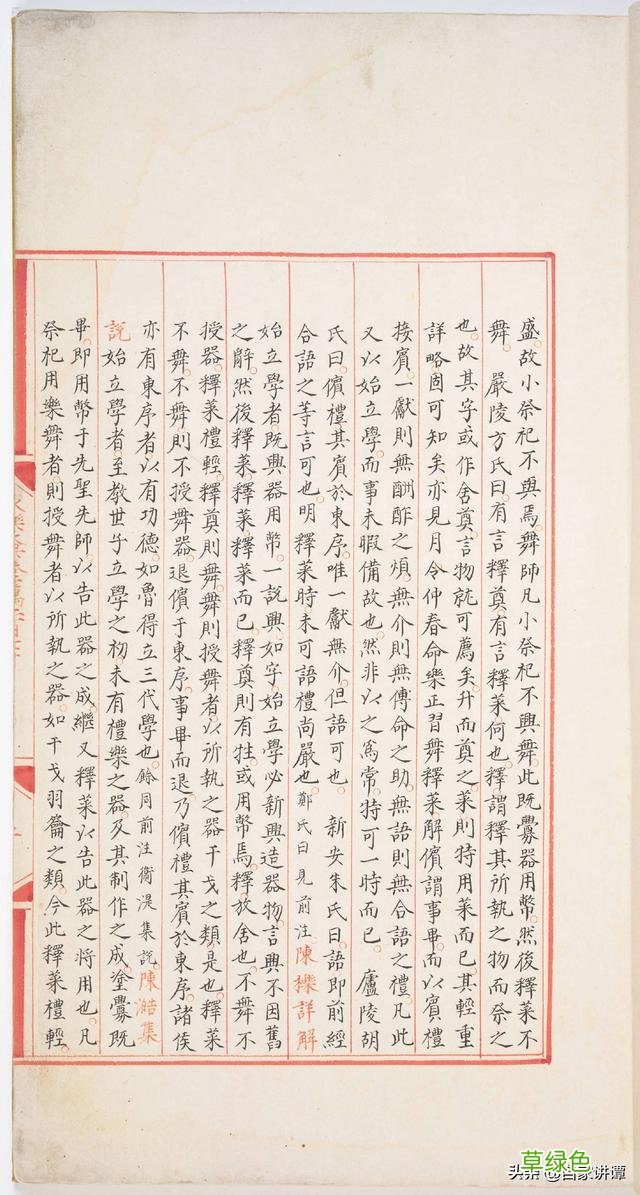 盛故小祭祀不興焉舞師凡小祭祀不興舞此既釁器用幣然後釋菜不
舞 嚴陵方氏曰有言釋奠有言釋菜何也釋謂釋其所執之物而祭之
也故其字或作舍奠言物就可薦矣升而奠之菜則特用菜而已其輕重
詳略固可知矣亦見月令仲春命樂正習舞釋菜解儐謂事畢而以賓禮
接賓一獻則無酬酢之煩無介則無傅命之助無語則無合語之禮凡此
又以始立學而事未暇備故也然非以之為常特可一時而已 廬陵胡
氏曰儐禮其賓於東序唯一獻無介但語可也 新安朱氏曰語即前經
合語之等言可也明釋菜時未可語禮尚嚴也鄭氏曰見前注陳櫟詳解
始立學者既興器用幣一說興如字始立學必新興造器物言興不因舊
之辭然後釋菜釋菜釋菜而已釋奠則有牲或用幣焉釋放舍也不舞不
授器釋菜禮輕釋奠則舞舞則授舞者以所執之器干戈之類是也釋菜
不舞不舞則不授舞器退儐于東序事畢而退乃儐禮其賓於東序諸侯
亦有東序者以有功德如魯得立三代學也餘同前注衛湜集說陳澔集
說始立學者至教世子立學之初未有禮樂之器及其制作之成塗釁既
畢即用幣于先聖先師以告此器之成繼又釋菜以告此器之將用也凡
祭祀用樂舞者則授舞者以所執之器如干戈羽籥之類今此釋菜禮輕
草绿色
头条 @百家讲谭